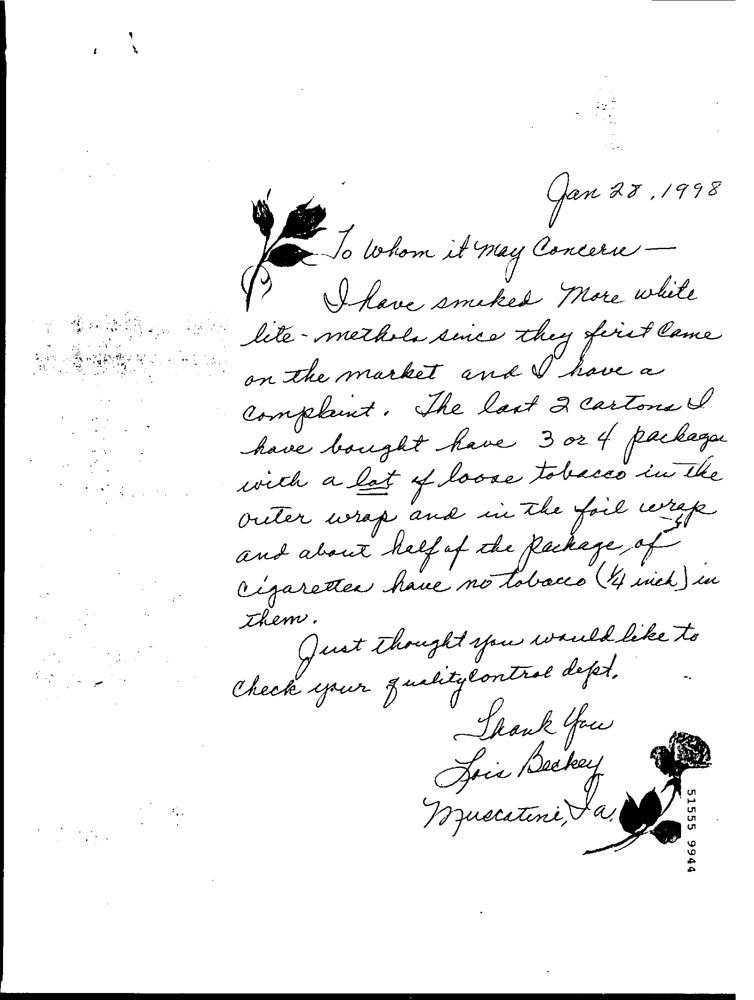 Jan 28, 1998
To Whom it May Concern —
I have smoked More white
lite - methols since they first came
on the market and I have a
complaint. The last 2 cartons I
have bought have 3 or 4 packages
with a lot of loose tobacco in the
outer wrap and in the foil wrap
and about half of the package, of
cigarettes have no tobacco (1/4 inch) in
them.
Just thought you would like to
check your quality control dept.
Thank You
Lois Beckey
Muscatine, Ia.
51555 9944